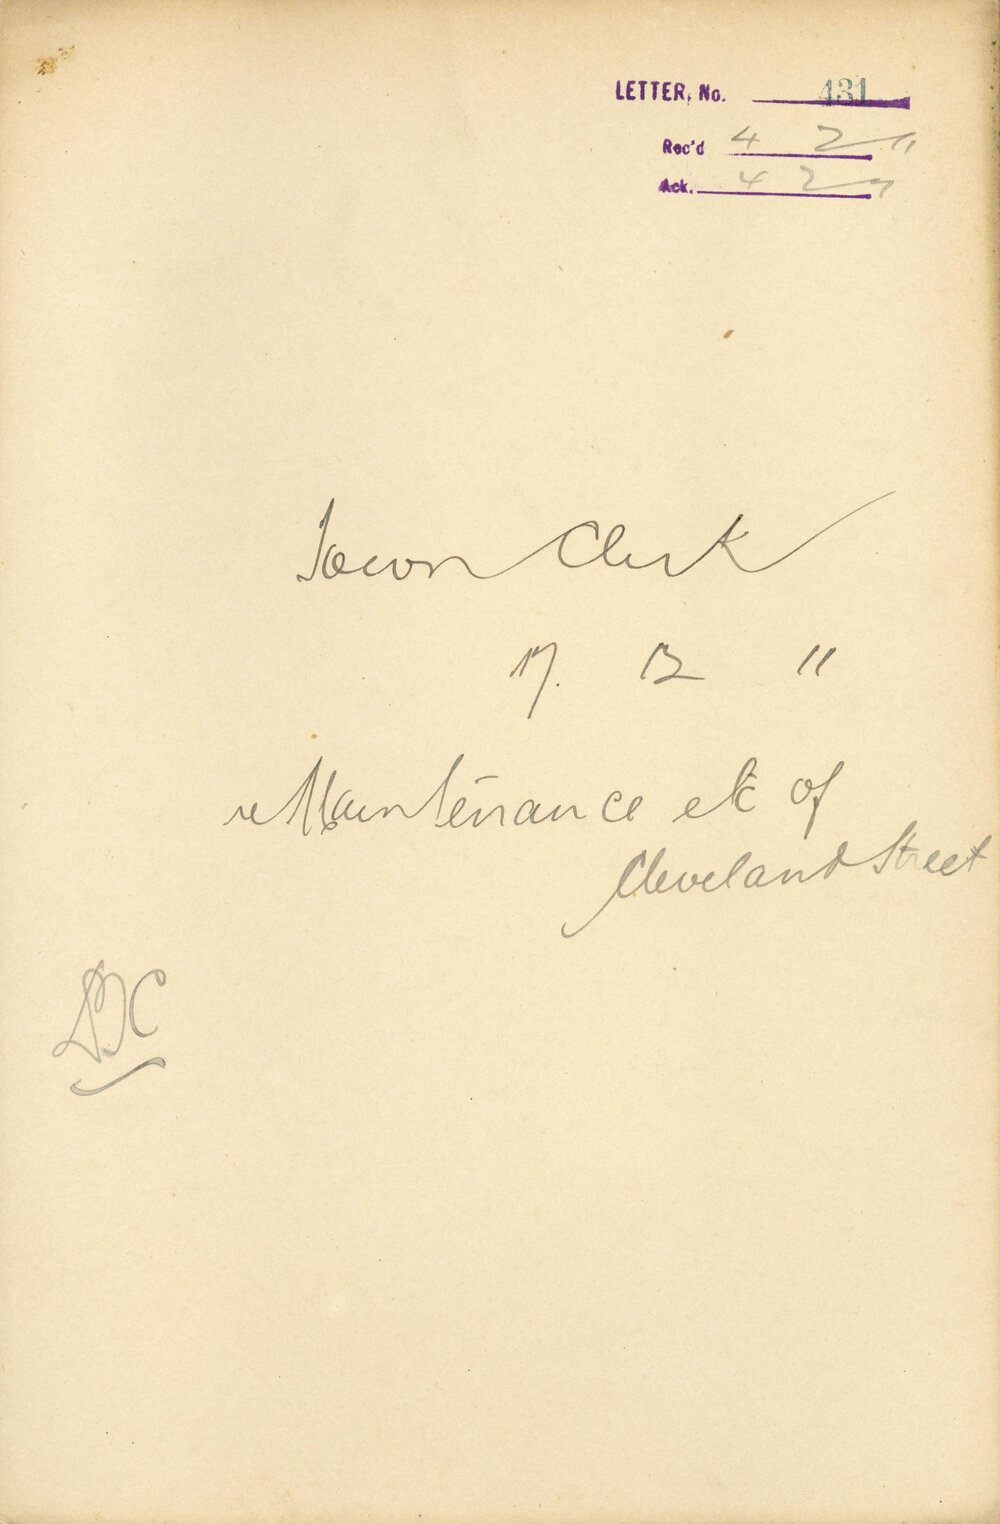 LETTER, No. 431
Rec'd 4 2 11
Ack. 4 2
Town Clerk
17. 12 11
re Maintenance etc of
Cleveland Street